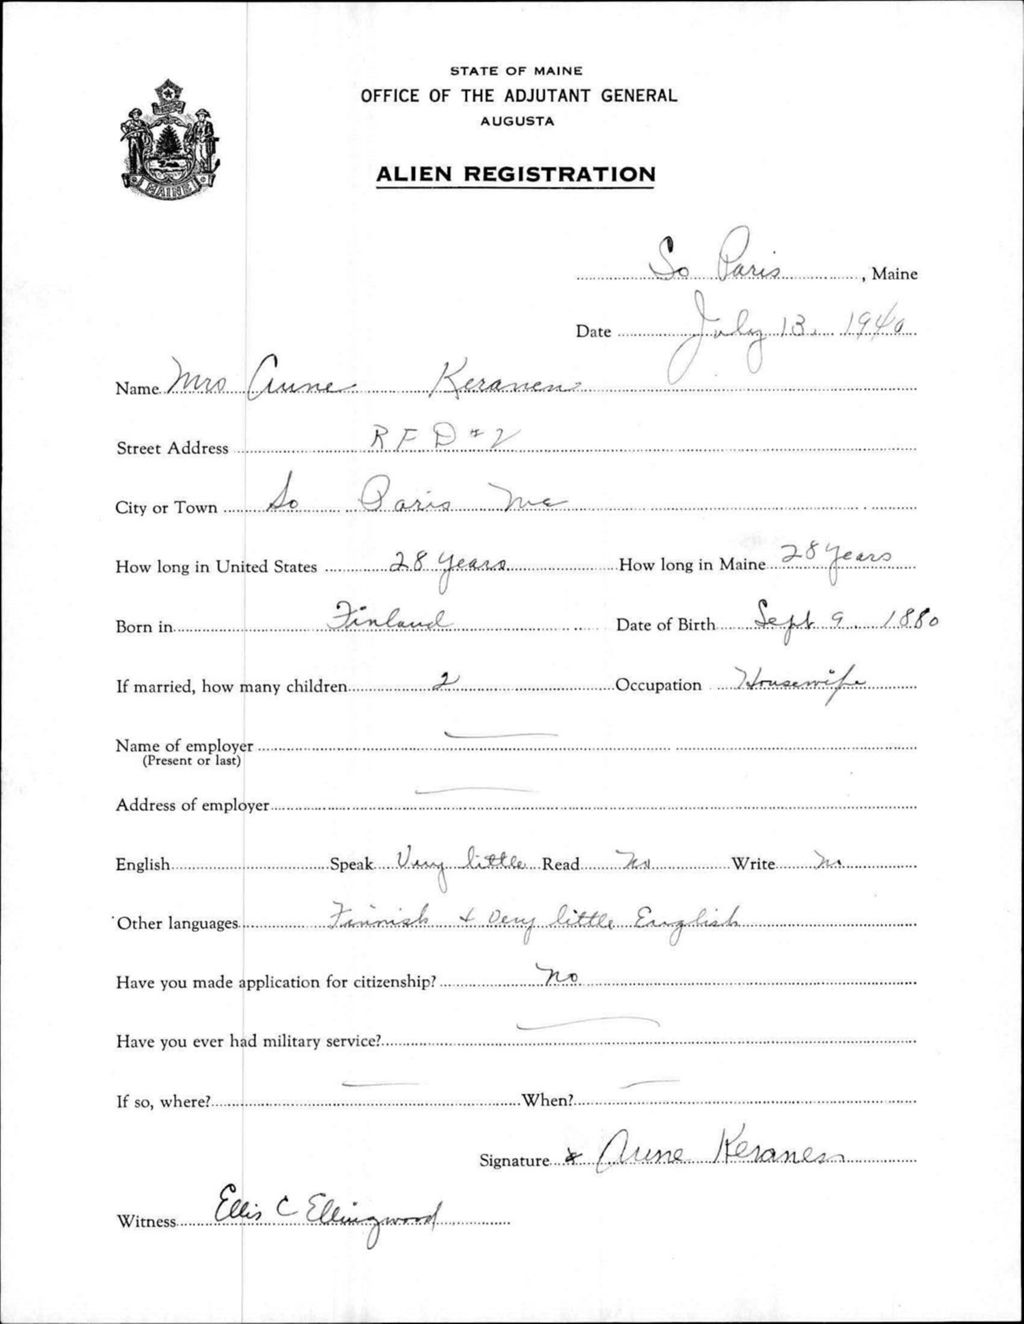 STATE OF MAINE
OFFICE OF THE ADJUTANT GENERAL
AUGUSTA
ALIEN REGISTRATION
MAINE
So Paris, Maine
Date July 13, 1940
Name Mrs Aune Keranen
Street Address R F D #2
City or Town So Paris Me
How long in United States 28 years How long in Maine 28 years
Born in Finland Date of Birth Sept 9. 1880
If married, how many children 2 Occupation Housewife
Name of employer
(Present or last)
Address of employer
English Speak Very little Read No Write No
Other languages Finnish & Very little English
Have you made application for citizenship? No
Have you ever had military service?
If so, where? When?
Signature x Aune Keranen
Witness Ellis C Ellingwood